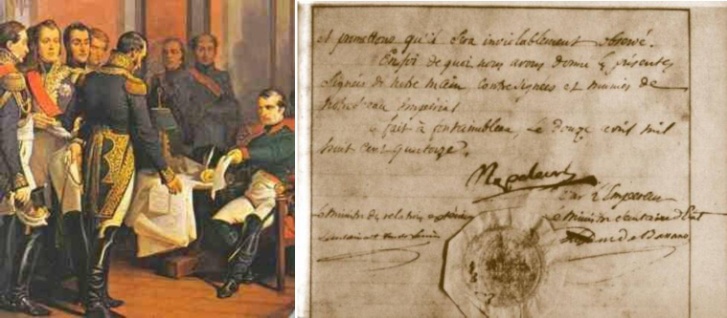 et promettons qu'il sera inviolablement observé.
En foi de quoi nous avons donné les présentes
Signées de notre main, contresignées et munies de
notre sceau impérial
fait à fontainebleau, Le douze avril mil
huit cent quatorze.
Napoleon
Par l'Empereur
Le Ministre des relations extérieures
Le Ministre Secrétaire d'Etat
Le Duc de Bassano